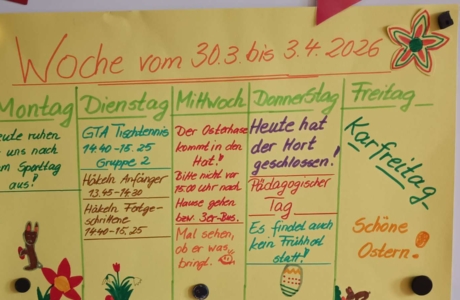 Woche vom 30.3. bis 3.4.2026
Montag
Heute ruhen
uns nach
Sporttag
aus!
Dienstag
GTA Tischtennis
14.40-15.25
Gruppe 2
Häkeln Anfänger
13.45-14.30
Häkeln Fortge-
schrittene
14.40-15.25
Mittwoch
Der Osterhase
kommt in den
Hort!
Bitte nicht vor
15.00 Uhr nach
Hause gehen
bzw. 3er-Bus.
Mal sehen,
ob er was
bringt.
Donnerstag
Heute hat
der Hort
geschlossen!
Pädagogischer
Tag
Es findet auch
kein Frühhort
statt!
Freitag
Karfreitag
Schöne
Ostern!